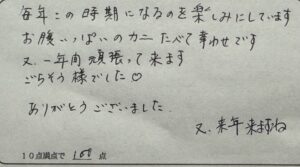 毎年この時期になるのを楽しみにしています
お腹いっぱいのカニたべて幸わせです
又、一年間頑張って来ます
ごちそう様でした♡
ありがとうございました
又、来年来ますね
10点満点で 100 点